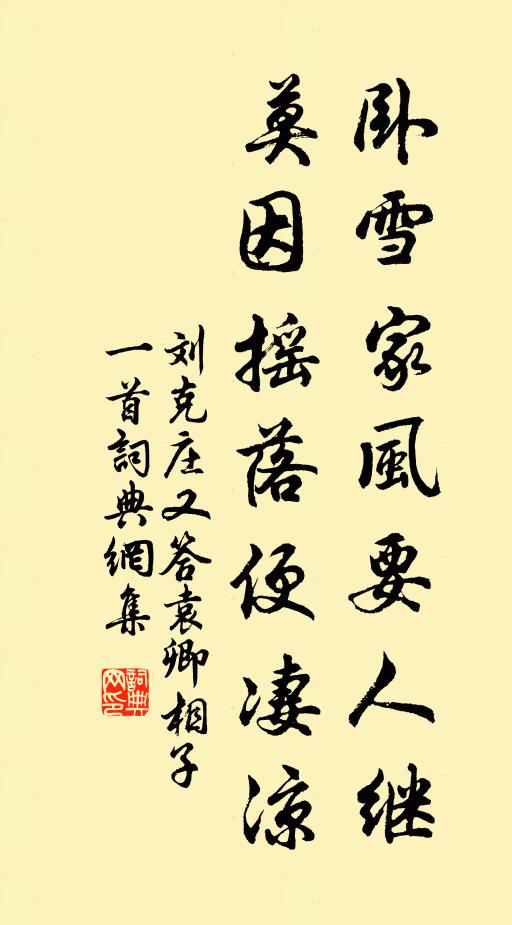 卧雪家風要人继
莫因摇落便凄凉
刘克庄又答袁卿相子
一首詞典網集
詞典網印